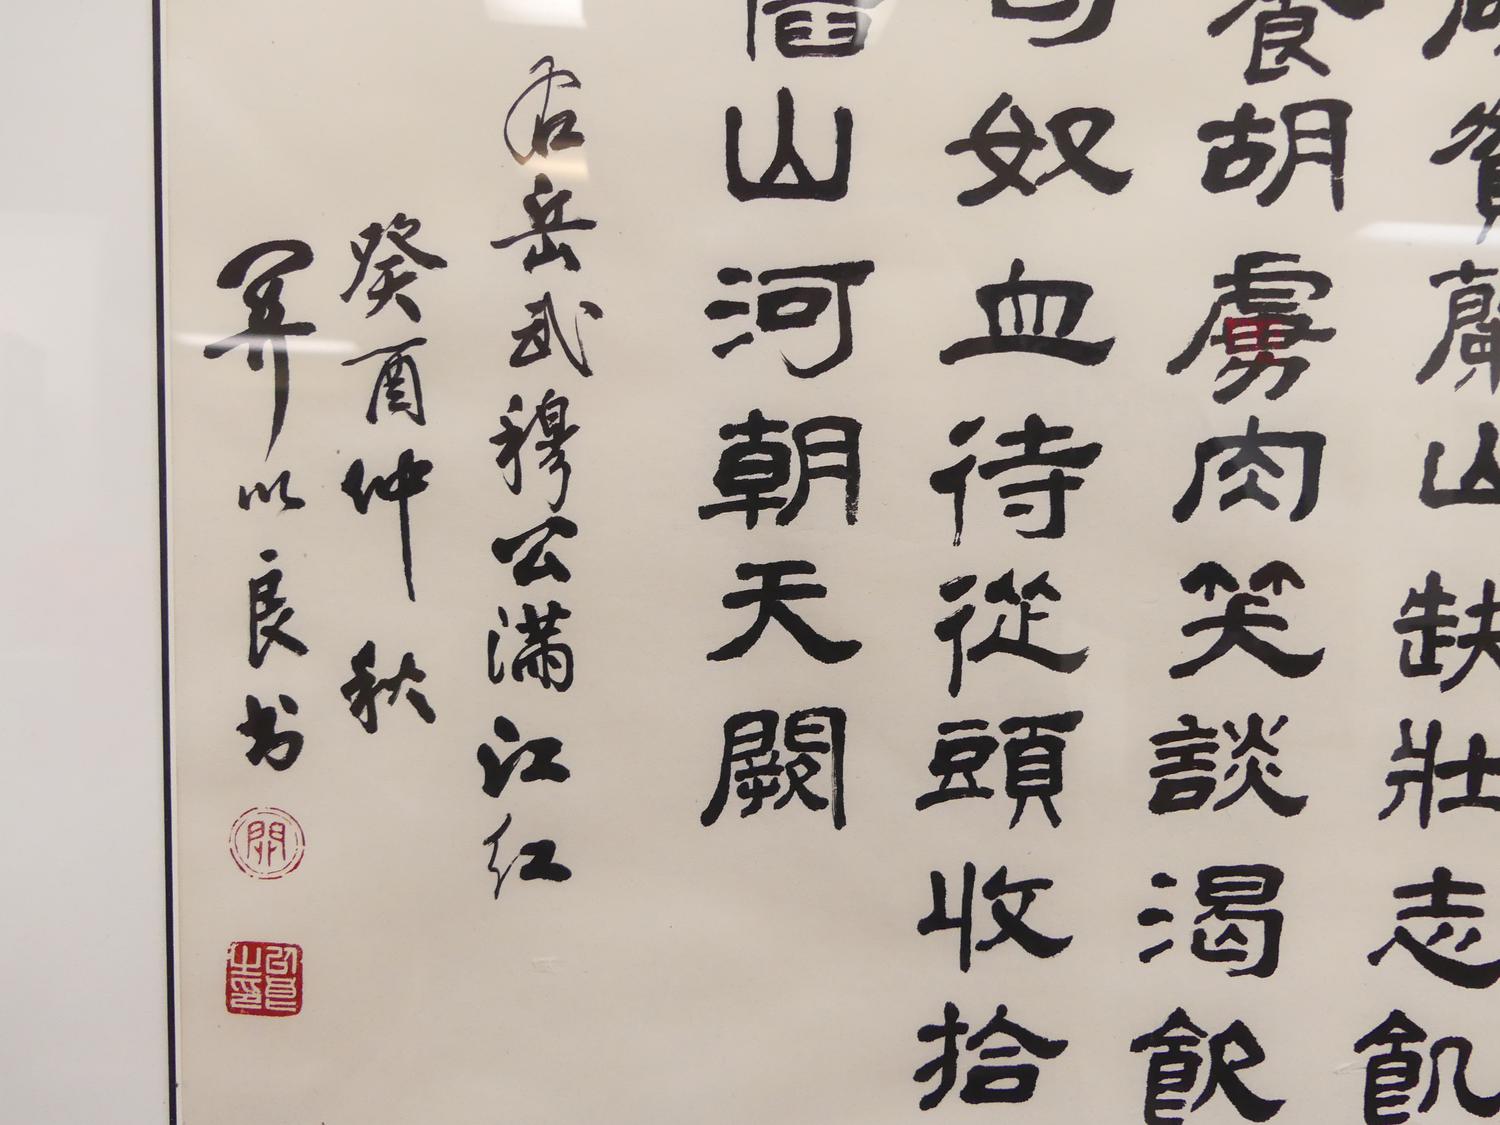 破賀蘭山缺壯志飢
餐胡虜肉笑談渴飲
匈奴血待從頭收拾
舊山河朝天闕
右岳武穆公满江红
癸酉仲秋
關以良书
以良之印